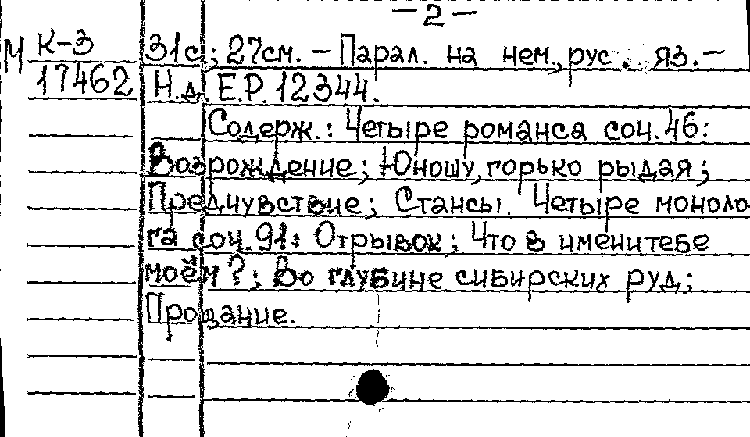 — 2 —
М К-3 31с.; 27см. – Парал. на нем., рус. яз. –
17462 Н.д. Е.Р. 12344.
Содерж.: Четыре романса соч. 46:
Возрождение; Юношу, горько рыдая;
Предчувствие; Стансы. Четыре моноло
га соч. 91: Отрывок; Что в имени тебе
моём?; Во глубине сибирских руд;
Прощание.